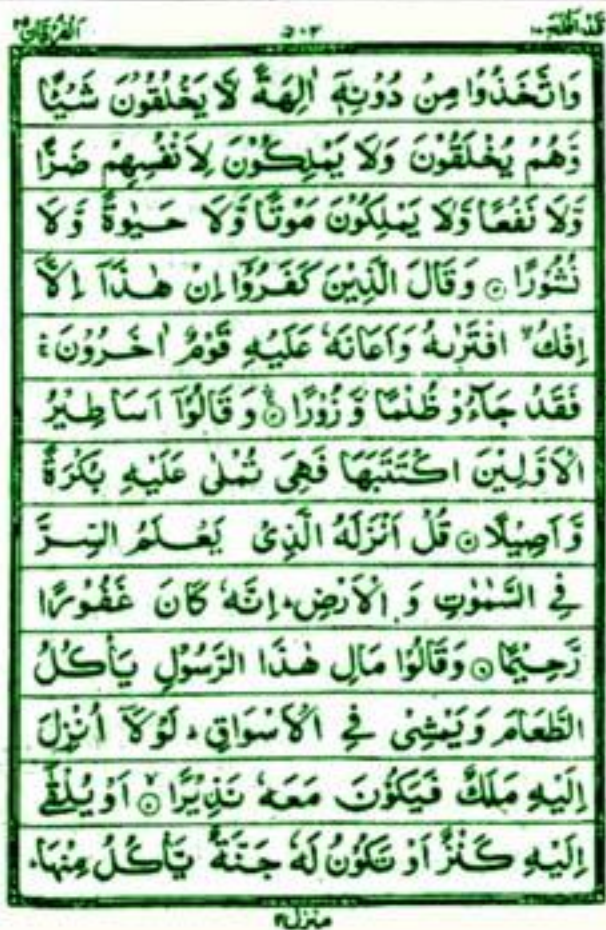 قَدْ اَفْلَحَ ۱۸ ۵۰۳ اَلْفُرْقَان ۲۵
وَاتَّخَذُوْا مِنْ دُوْنِهٖٓ اٰلِهَةً لَّا يَخْلُقُوْنَ شَيْـًٔا
وَّهُمْ يُخْلَقُوْنَ وَلَا يَمْلِكُوْنَ لِاَنْفُسِهِمْ ضَرًّا
وَّلَا نَفْعًا وَّلَا يَمْلِكُوْنَ مَوْتًا وَّلَا حَيٰوةً وَّلَا
نُشُوْرًا ۝ وَقَالَ الَّذِيْنَ كَفَرُوْٓا اِنْ هٰذَآ اِلَّآ
اِفْكُ ۨ افْتَرٰىهُ وَاَعَانَهٗ عَلَيْهِ قَوْمٌ اٰخَرُوْنَ ۛ
فَقَدْ جَآءُوْ ظُلْمًا وَّزُوْرًا ۝ وَقَالُوْٓا اَسَاطِيْرُ
الْاَوَّلِيْنَ اكْتَتَبَهَا فَهِىَ تُمْلٰى عَلَيْهِ بُكْرَةً
وَّاَصِيْلًا ۝ قُلْ اَنْزَلَهُ الَّذِىْ يَعْلَمُ السِّرَّ
فِى السَّمٰوٰتِ وَ الْاَرْضِ ؕ اِنَّهٗ كَانَ غَفُوْرًا
رَّحِيْمًا ۝ وَقَالُوْا مَالِ هٰذَا الرَّسُوْلِ يَاْكُلُ
الطَّعَامَ وَيَمْشِىْ فِى الْاَسْوَاقِ ؕ لَوْلَآ اُنْزِلَ
اِلَيْهِ مَلَكٌ فَيَكُوْنَ مَعَهٗ نَذِيْرًا ۝ اَوْ يُلْقٰٓى
اِلَيْهِ كَنْزٌ اَوْ تَكُوْنُ لَهٗ جَنَّةٌ يَّاْكُلُ مِنْهَا ؕ
منزل ۴